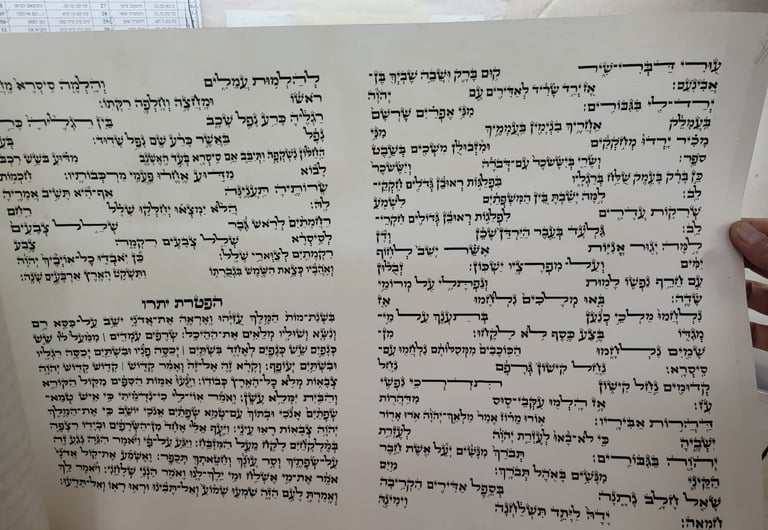 עורי דברי־שיר קום ברק ושבה שביך בן־
אבינעם: אז ירד שריד לאדירים עם יהוה
ירד־לי בגבורים: מני אפרים שרשם
בעמלק אחריך בנימין בעממיך מני
מכיר ירדו מחקקים ומזבולן משכים בשבט
ספר: ושרי ביששכר עם־דברה ויששכר
כן ברק בעמק שלח ברגליו בפלגות ראובן גדלים חקקי־
לב: למה ישבת בין המשפתים לשמע
שרקות עדרים לפלגות ראובן גדולים חקרי־
לב: גלעד בעבר הירדן שכן ודן
למה יגור אניות אשר ישב לחוף
ימים ועל מפרציו ישכון: זבלון
עם חרף נפשו למות ונפתלי על מרומי
שדה: באו מלכים נלחמו אז
נלחמו מלכי כנען בתענך על־מי־
מגדו בצע כסף לא לקחו: מן־
שמים נלחמו הכוכבים ממסלותם נלחמו עם־
סיסרא: נחל קישון גרפם נחל
קדומים נחל קישון תדרכי נפשי
עז: אז הלמו עקבי־סוס מדהרות
דהרות אביריו: אורו מרוז אמר מלאך יהוה ארו ארור
ישביה כי לא־באו לעזרת יהוה לעזרת
יהוה בגבורים: תברך מנשים יעל אשת חבר
הקיני מנשים באהל תברך: מים
שאל חלב נתנה בספל אדירים הקריבה
חמאה: ידה ליתד תשלחנה וימינה
להלמות עמלים והלמה סיסרא
ראשו ומחצה וחלפה רקתו:
רגליה כרע נפל שכב בין רגליה
נפל באשר כרע שם נפל שדוד:
החלון נשקפה ותיבב אם סיסרא בעד האשנב מדוע בשש רכבו
לבוא מדוע אחרו פעמי מרכבותיו: חכמות
שרותיה תעננה אף־היא תשיב אמריה
לה: הלא ימצאו יחלקו שלל רחם
רחמתים לראש גבר שלל צבעים
לסיסרא שלל צבעים רקמה צבע
רקמתים לצוארי שלל: כן יאבדו כל־אויביך יהוה
ואהביו כצאת השמש בגברתו ותשקט הארץ ארבעים שנה:
הפטרת יתרו
בשנת־מות המלך עזיהו ואראה את־אדני ישב על־כסא רם
ונשא ושוליו מלאים את־ההיכל: שרפים עמדים | ממעל לו שש
כנפים שש כנפים לאחד בשתים | יכסה פניו ובשתים יכסה רגליו
ובשתים יעופף: וקרא זה אל־זה ואמר קדוש | קדוש קדוש יהוה
צבאות מלא כל־הארץ כבודו: וינעו אמות הספים מקול הקורא
והבית ימלא עשן: ואמר אוי־לי כי־נדמיתי כי איש טמא־
שפתים אנכי ובתוך עם־טמא שפתים אנכי יושב כי את־המלך
יהוה צבאות ראו עיני: ויעף אלי אחד מן־השרפים ובידו רצפה
במלקחים לקח מעל המזבח: ויגע על־פי ויאמר הנה נגע זה
על־שפתיך וסר עונך וחטאתך תכפר: ואשמע את־קול אדני
אמר את־מי אשלח ומי ילך־לנו ואמר הנני שלחני: ויאמר לך
ואמרת לעם הזה שמעו שמוע ואל־תבינו וראו ראו ואל־תדעו: